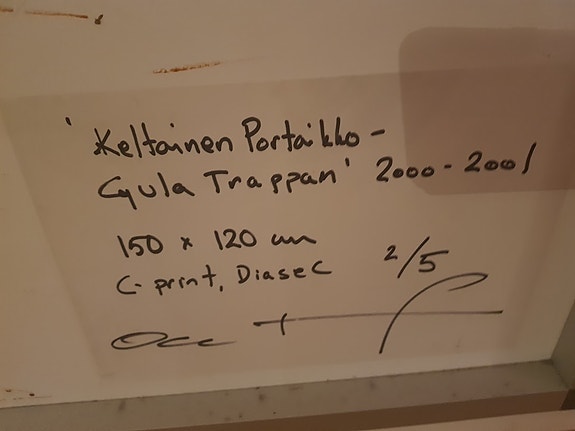 'Keltainen Portaikko -
Gula Trappan' 2000-2001
150 x 120 cm
C-print, Diasec 2/5